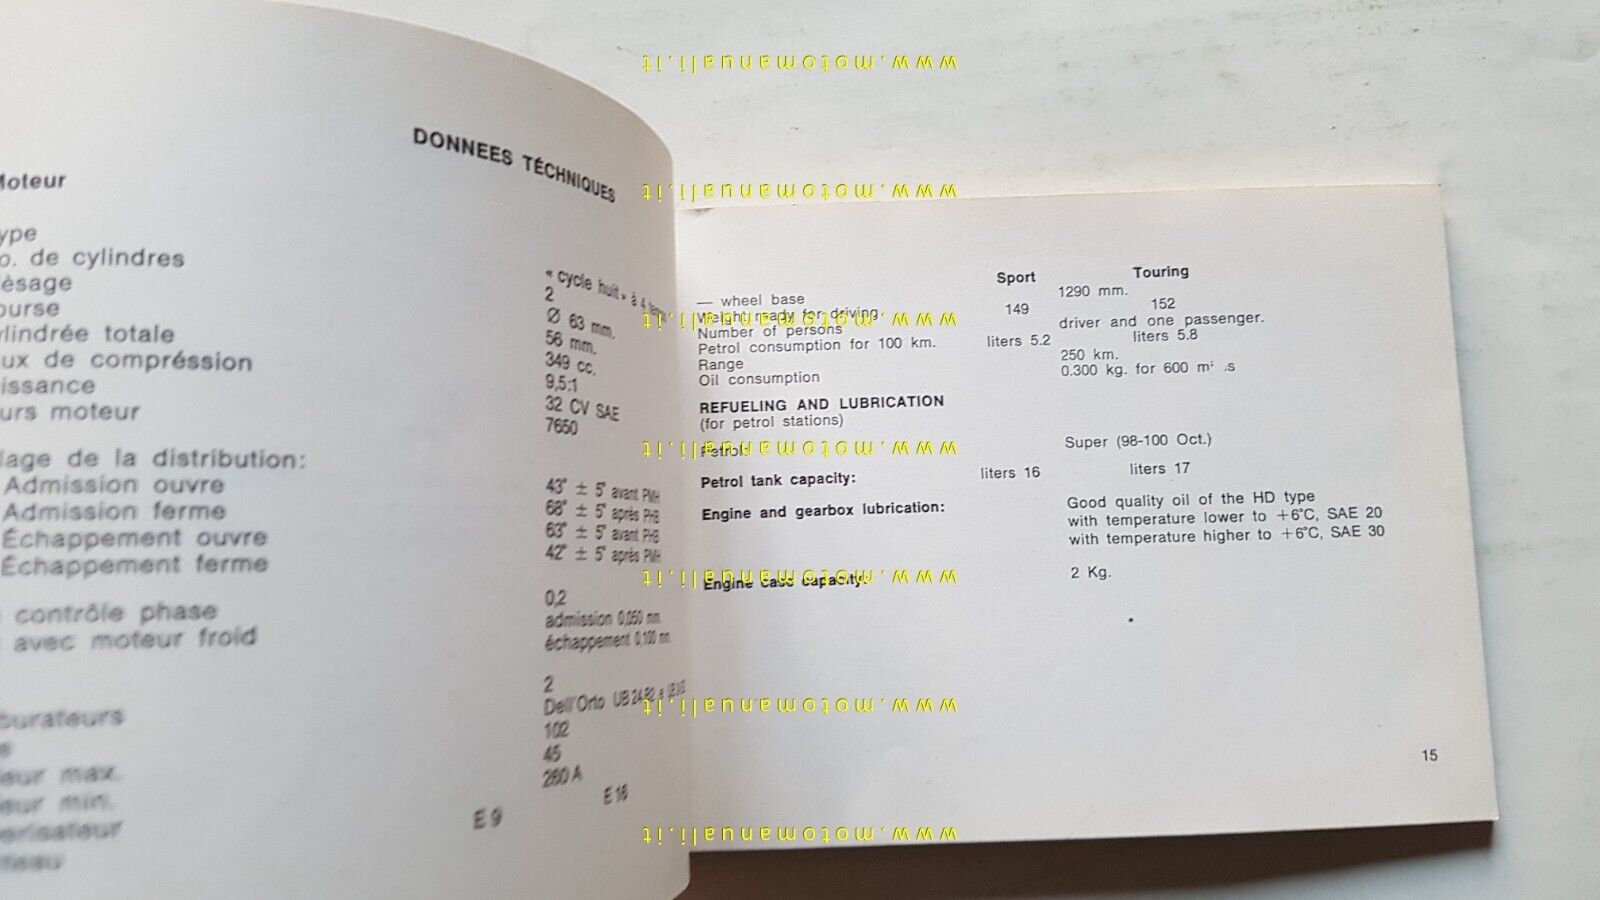 DONNEES TÉCHNIQUES
Moteur
ype
o. de cylindres
lèsage
ourse
ylindrée totale
ux de compréssion
issance
urs moteur
lage de la distribution:
Admission ouvre
Admission ferme
Échappement ouvre
Échappement ferme
contrôle phase
avec moteur froid
burateurs
eur max.
eur min.
érisateur
teau
« cycle huit » à 4
2
Ø 63 mm.
56 mm.
349 cc.
9,5:1
32 CV SAE
7650
43° ± 5° avant PMH
68° ± 5° après PHB
63° ± 5° avant PHB
42° ± 5° après PMH
0,2
admission 0,050 mm.
échappement 0,100 mm.
2
Dell'Orto UB 24 B2 e
102
45
260 A
E 9 E 16
Sport Touring
— wheel base 1290 mm.
Weight ready for driving 149 152
Number of persons driver and one passenger.
Petrol consumption for 100 km. liters 5.2 liters 5.8
Range 250 km.
Oil consumption 0.300 kg. for 600 m
REFUELING AND LUBRICATION
(for petrol stations)
Petrol: Super (98-100 Oct.)
Petrol tank capacity: liters 16 liters 17
Engine and gearbox lubrication: Good quality oil of the HD type
with temperature lower to +6°C, SAE 20
with temperature higher to +6°C, SAE 30
Engine case capacity: 2 Kg.
15
www.motomanuali.it
www.motomanuali.it
www.motomanuali.it
www.motomanuali.it
www.motomanuali.it
www.motomanuali.it
www.motomanuali.it